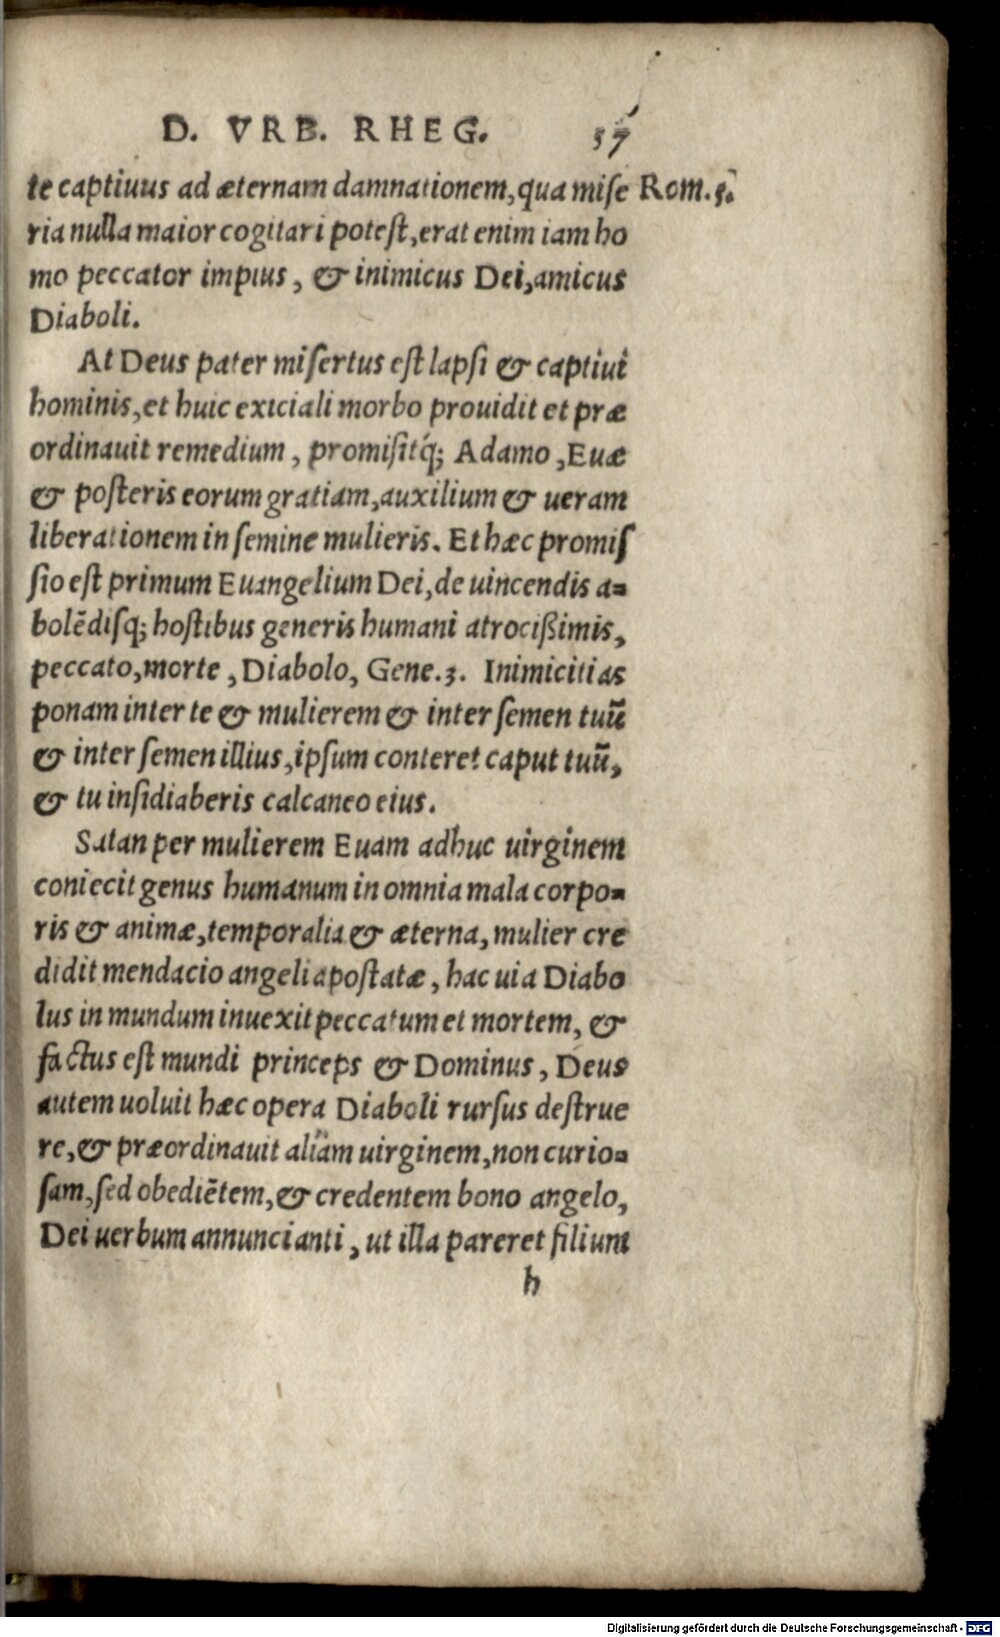 D. VRB. RHEG. 57
te captiuus ad æternam damnationem, qua mise Rom. 5.
ria nulla maior cogitari potest, erat enim iam ho
mo peccator impius, & inimicus Dei, amicus
Diaboli.
At Deus pater misertus est lapsi & captiui
hominis, et huic exiciali morbo prouidit et præ
ordinauit remedium, promisitq́; Adamo, Euæ
& posteris eorum gratiam, auxilium & ueram
liberationem in semine mulieris. Et hæc promiſ
sio est primum Euangelium Dei, de uincendis a-
bolēdisq; hostibus generis humani atrocißimis,
peccato, morte, Diabolo, Gene. 3. Inimicitias
ponam inter te & mulierem & inter semen tuū
& inter semen illius, ipsum conteret caput tuū,
& tu insidiaberis calcaneo eius.
Satan per mulierem Euam adhuc uirginem
coniecit genus humanum in omnia mala corpo-
ris & animæ, temporalia & æterna, mulier cre
didit mendacio angeli apostatæ, hac uia Diabo
lus in mundum inuexit peccatum et mortem, &
factus est mundi princeps & Dominus, Deus
autem uoluit hæc opera Diaboli rursus destrue
re, & præordinauit aliam uirginem, non curio-
sam, sed obediētem, & credentem bono angelo,
Dei uerbum annuncianti, ut illa pareret filium
h
Digitalisierung gefördert durch die Deutsche Forschungsgemeinschaft - DFG